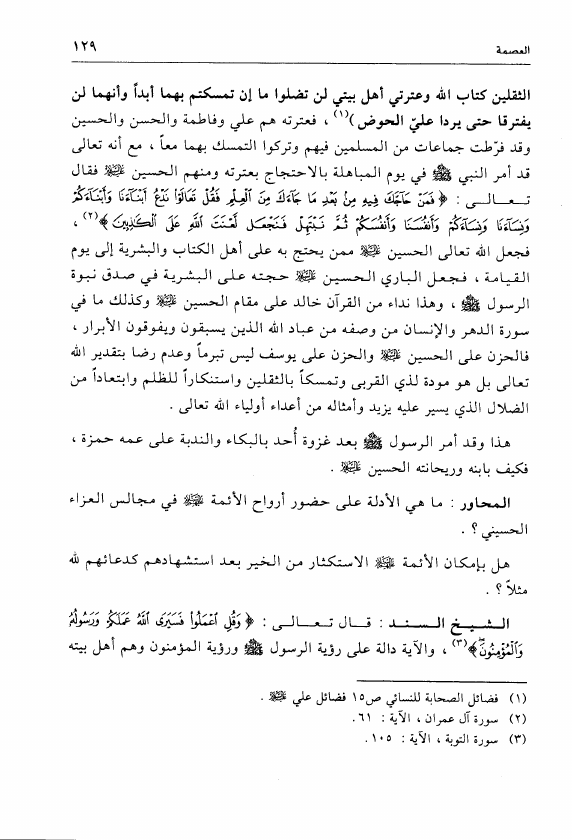 العصمة
١٢٩
الثقلين كتاب الله وعترتي أهل بيتي لن تضلوا ما إن تمسكتم بهما أبداً وأنهما لن
يفترقا حتى يردا عليّ الحوض)(١) ، فعترته هم علي وفاطمة والحسن والحسين
وقد فرّطت جماعات من المسلمين فيهم وتركوا التمسك بهما معاً ، مع أنه تعالى
قد أمر النبي ﷺ في يوم المباهلة بالاحتجاج بعترته ومنهم الحسين فقال
تعالى : ﴿ فَمَنْ حَاجَّكَ فِيهِ مِنْ بَعْدِ مَا جَاءَكَ مِنَ الْعِلْمِ فَقُلْ تَعَالَوْا نَدْعُ أَبْنَاءَنَا وَأَبْنَاءَكُمْ
وَنِسَاءَنَا وَنِسَاءَكُمْ وَأَنْفُسَنَا وَأَنْفُسَكُمْ ثُمَّ نَبْتَهِلْ فَنَجْعَلْ لَعْنَتَ اللَّهِ عَلَى الْكَاذِبِينَ ﴾(٢) ،
فجعل الله تعالى الحسين ممن يحتج به على أهل الكتاب والبشرية إلى يوم
القيامة ، فجعل الباري الحسين حجته على البشرية في صدق نبوة
الرسول ﷺ ، وهذا نداء من القرآن خالد على مقام الحسين وكذلك ما في
سورة الدهر والإنسان من وصفه من عباد الله الذين يسبقون ويفوقون الأبرار ،
فالحزن على الحسين والحزن على يوسف ليس تبرماً وعدم رضا بتقدير الله
تعالى بل هو مودة لذي القربى وتمسكاً بالثقلين واستنكاراً للظلم وابتعاداً من
الضلال الذي يسير عليه يزيد وأمثاله من أعداء أولياء الله تعالى .
هذا وقد أمر الرسول ﷺ بعد غزوة أُحد بالبكاء والندبة على عمه حمزة ،
فكيف بابنه وريحانته الحسين .
المحاور : ما هي الأدلة على حضور أرواح الأئمة في مجالس العزاء
الحسيني ؟ .
هل بإمكان الأئمة الاستكثار من الخير بعد استشهادهم كدعائهم لله
مثلاً ؟ .
الشيخ السند : قال تعالى : ﴿ وَقُلِ اعْمَلُوا فَسَيَرَى اللَّهُ عَمَلَكُمْ وَرَسُولُهُ
وَالْمُؤْمِنُونَ ﴾(٣) ، والآية دالة على رؤية الرسول ﷺ ورؤية المؤمنون وهم أهل بيته
(١) فضائل الصحابة للنسائي ص١٥ فضائل علي .
(٢) سورة آل عمران ، الآية : ٦١.
(٣) سورة التوبة ، الآية : ١٠٥.